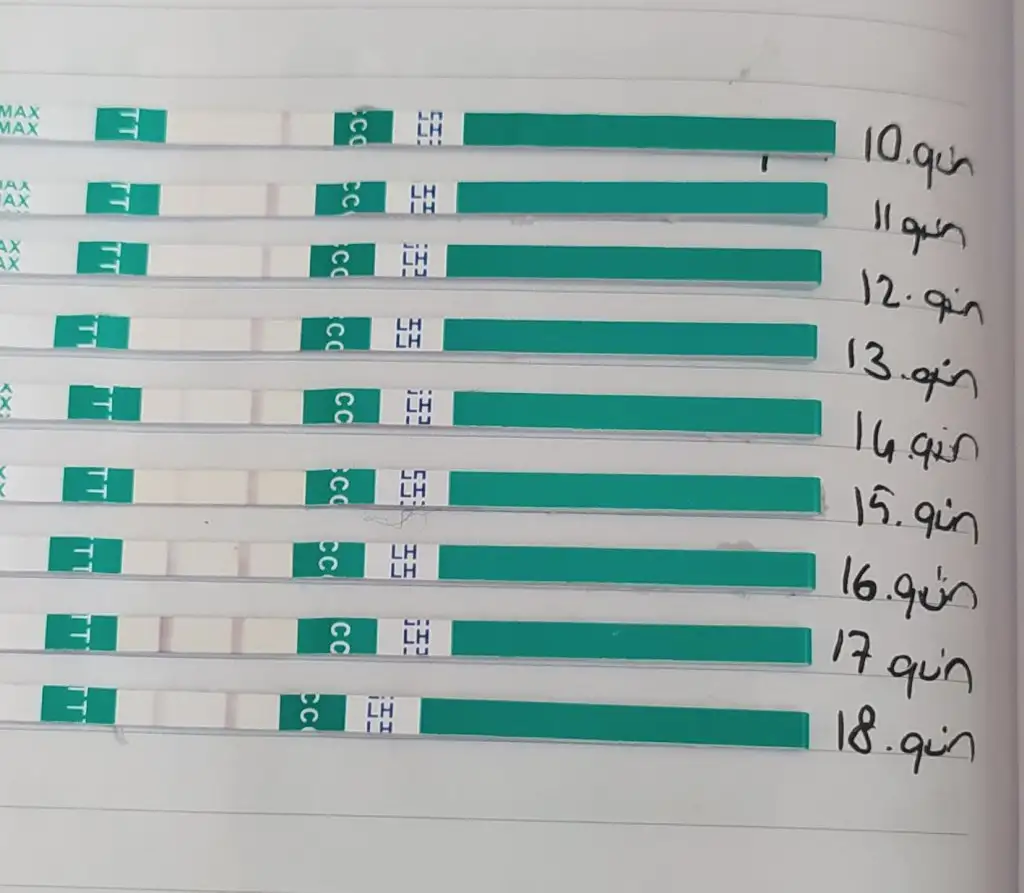 MAX MAX TT CC LH LH 10.gün
AX AX TT CC LH LH 11 gün
AX AX TT CC LH 12.gün
TT CC LH LH 13.gün
X X TT CC LH 14.gün
TT CC LH 15.gün
TT CC LH LH 16.gün
TT CC LH 17 gün
TT CC LH LH 18.gün